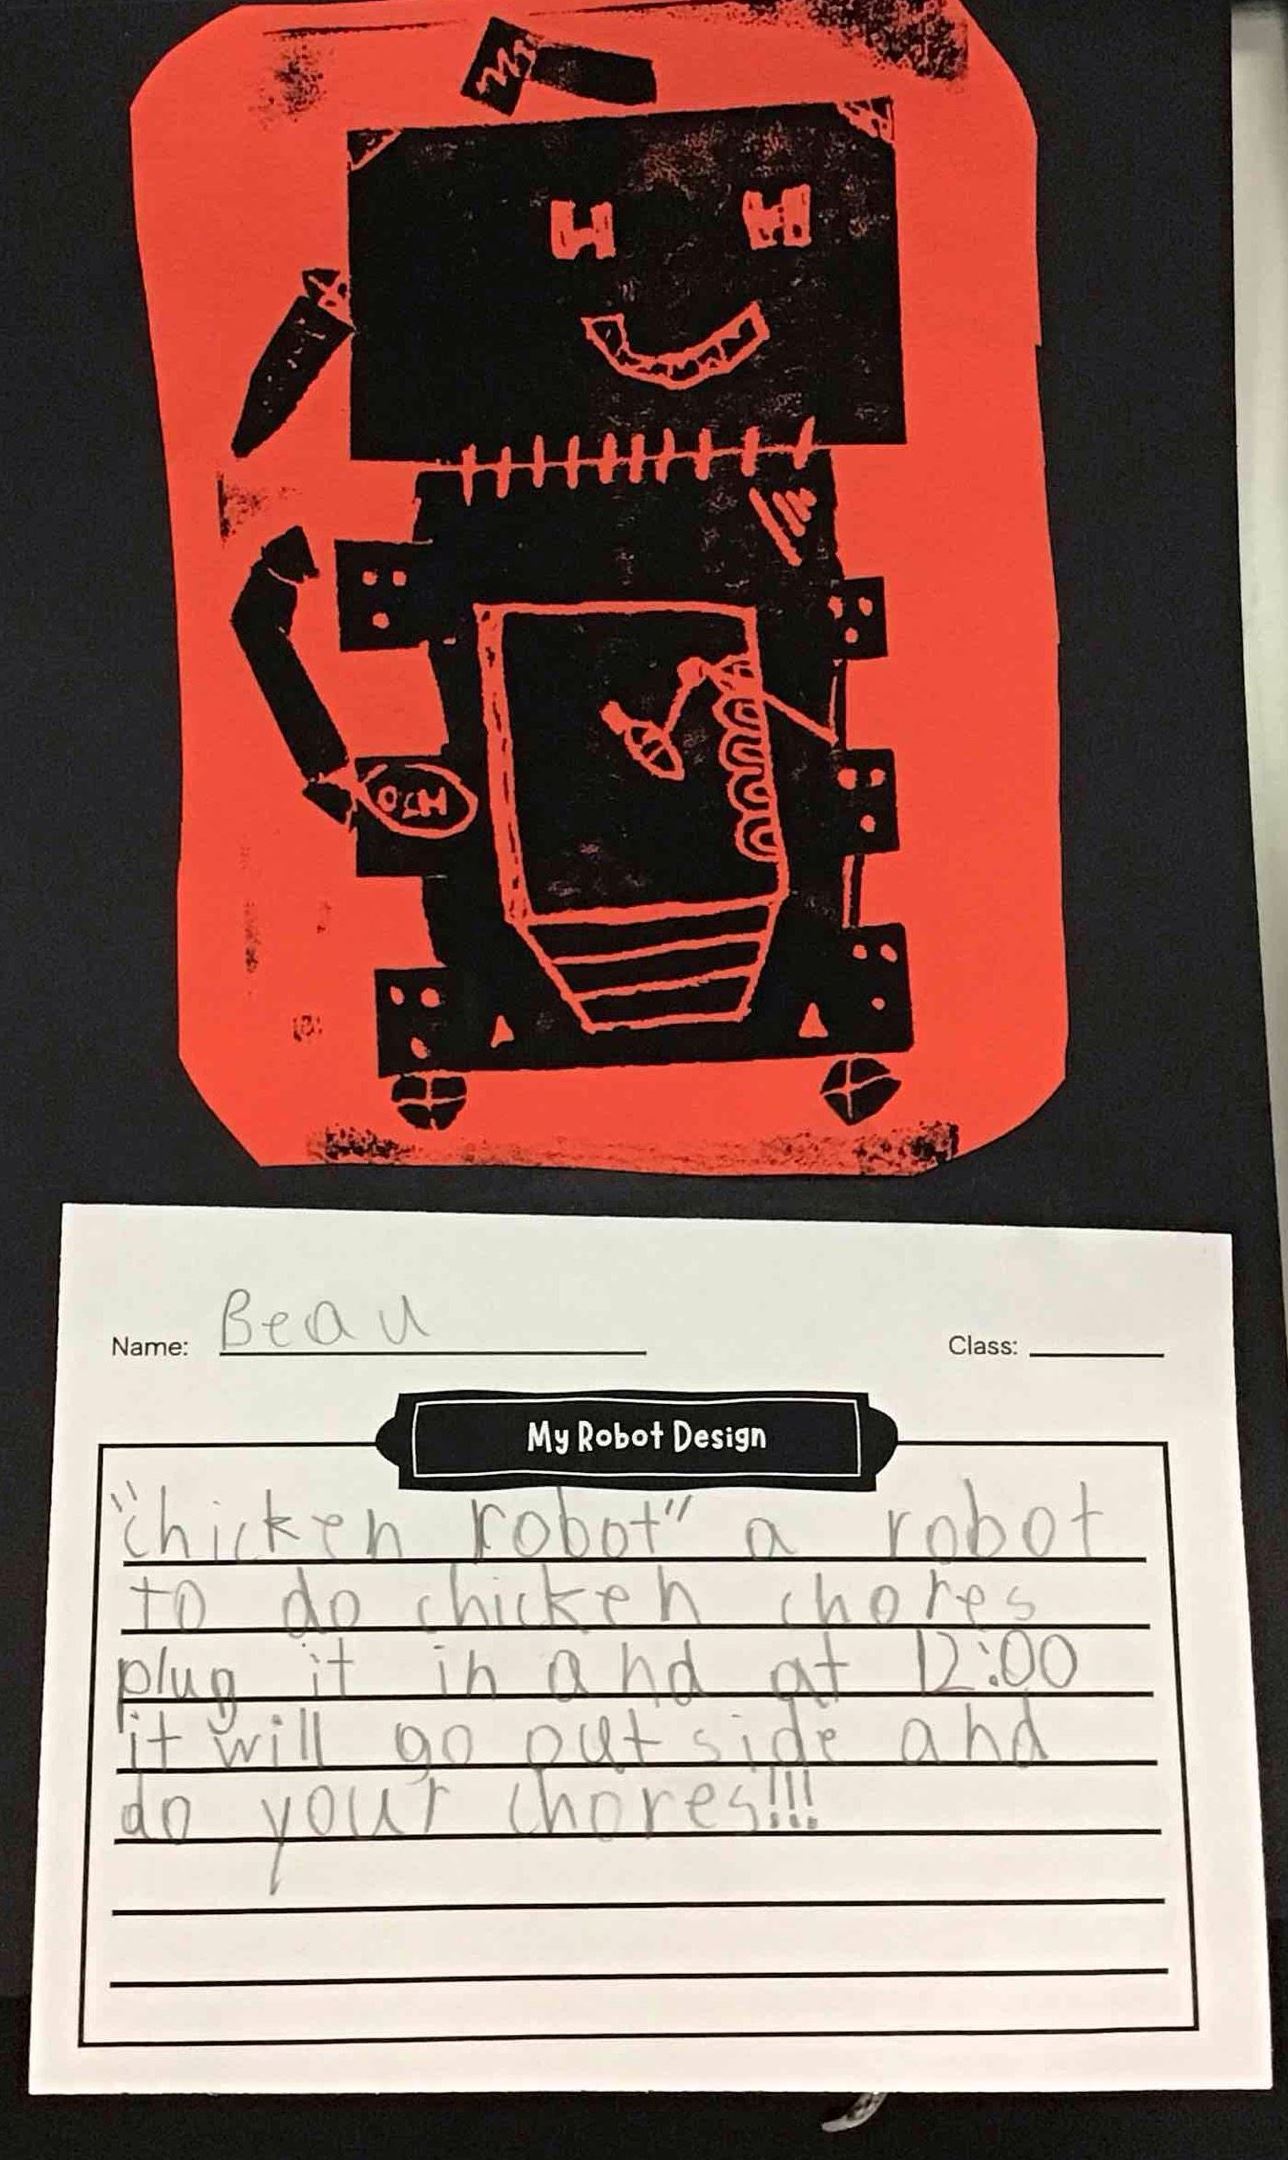 Name: Beau
Class:
My Robot Design
"chicken robot" a robot
to do chicken chores
plug it in and at 12:00
it will go out side and
do your chores!!!